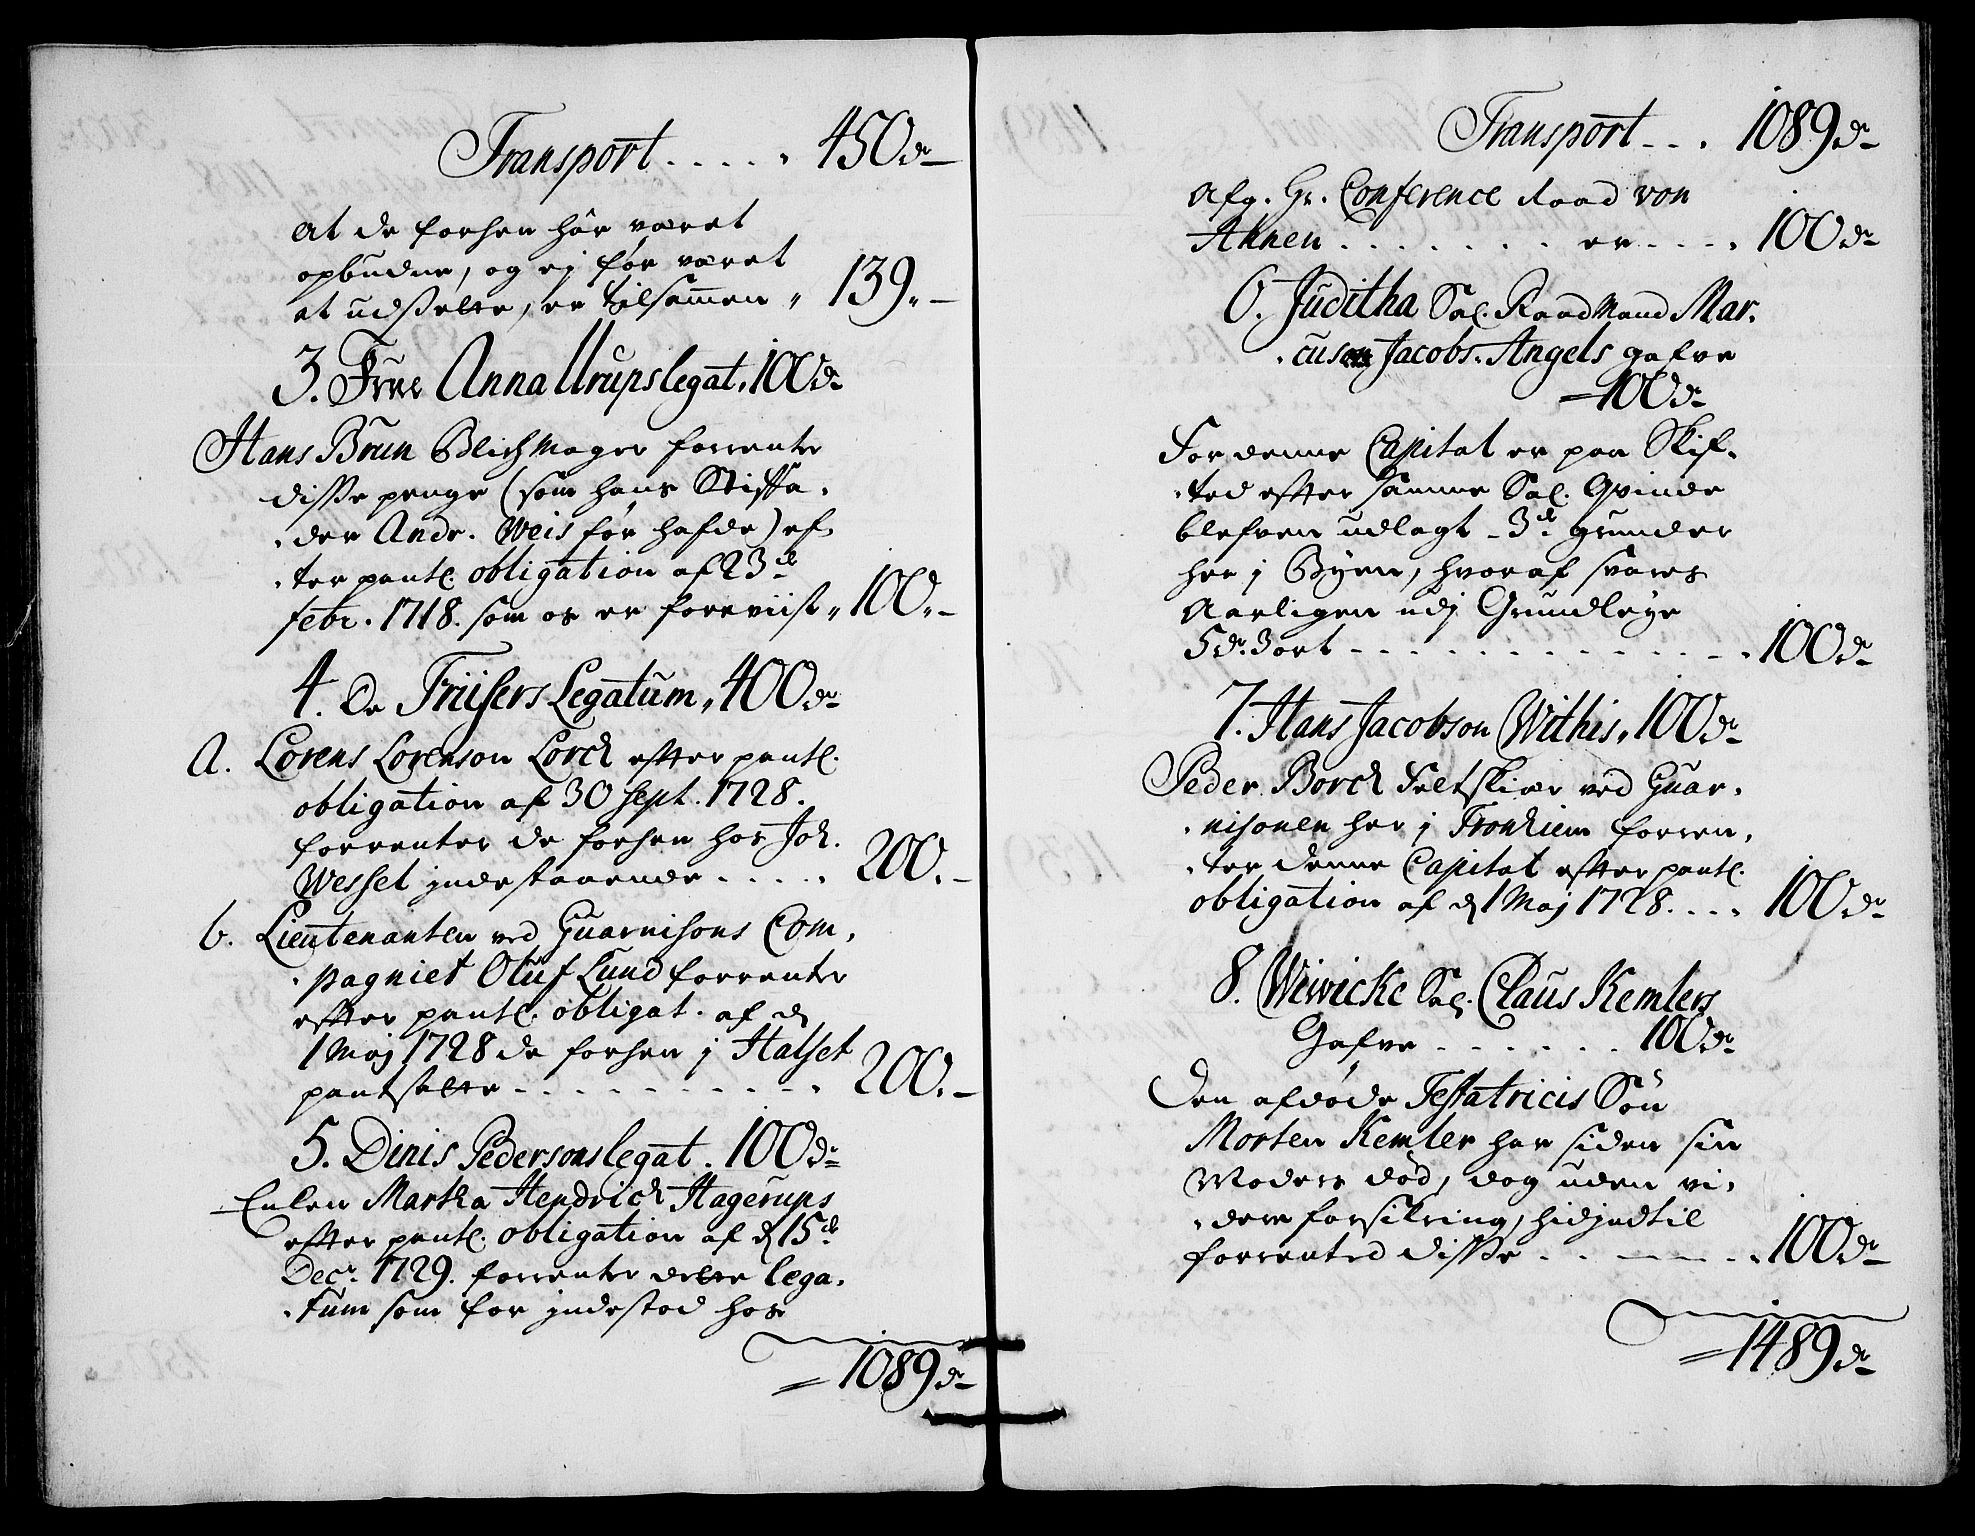 Transport . . . . . 450 dr
at de forhen har været
opbudne, og ej før været
at udsette, er tilsammen " 139 " -
3. Frue Anna Urups legat. 100 dr
Hans Brun Blichmager forrenter
disse penge (som hans Stiffa-
der Andr. Weis før hafde) ef-
ter pantl. obligation af 23de
febr. 1718. som os er foreviist " 100 " -
4. De Friisers Legatum, 400 dr
a. Lorens Lorenson Lorck efter pantl.
obligation af 30 Sept. 1728.
forrenter de forhen hos Joh.
Wessel indestaaende . . . . . 200. -
b. Lieutenanten ved Guarnisons Com-
pagniet Oluf Lund forrenter
efter pantl. obligat. af d.
1 Maj 1728 de forhen i Halset
pantsatte - - - - - - - - - 200. -
5. Dinis Pedersons legat. 100 dr
Enken Martha Hendrich Hagerups
efter pantl. obligation af d. 15de
Decr. 1729. forrenter dette lega-
tum som før indestod hos
= 1089 dr
Transport - - . 1089 dr
Afg. Hr. Conference Raad von
Ahnen . . . . . . . er - - - . 100 dr
6. Juditha Sal. Raadmand Mar-
cus Jacobs. Angels gafve
- 100 dr
For denne Capital er paa Skif-
ted efter samme Sal. Qvinde
blefven udlagt - 3de grunder
her i Byen, hvoraf svares
Aarligen udj Grundleye
5 dr. 3 ort - - - - - - - - - - - 100 dr
7. Hans Jacobson Withis, 100 dr
Peder Borch Feltskiær ved Guar-
nisonen her i Tronhiem forren-
ter denne Capital efter pantl.
obligation af d. 1 Maj 1728. . . . 100 dr
8. Wewicke Sal. Claus Kemlers
Gafve - - - - - . 100 dr
Den afdøde Testatricis Søn
Morten Kemler har siden sin
Moders død, dog uden vi-
dere forsikring, hidindtil
forrented disse - - - - - 100 dr
= 1489 dr